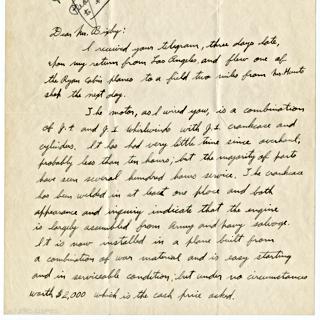 Dear Mr. Bixby:
I received your telegram, three days late,
upon my return from Los Angeles, and flew one of
the Ryan Cabin planes to a field two miles from Mr. Hunts
shop the next day.
The motor, as I wired you, is a combination
of J.4 and J.1 Whirlwinds with J.1 crankcase and
cylinders. It has had very little time since overhaul,
probably less than ten hours, but the majority of parts
have seen several hundred hours service. The crankcase
has been welded in at least one place and both
appearance and inquiry indicate that the engine
is largely assembled from Army and Navy salvage.
It is now installed in a plane built from
a combination of war material and is easy starting
and in serviceable condition, but under no circumstances
worth $2,000 which is the cash price asked.